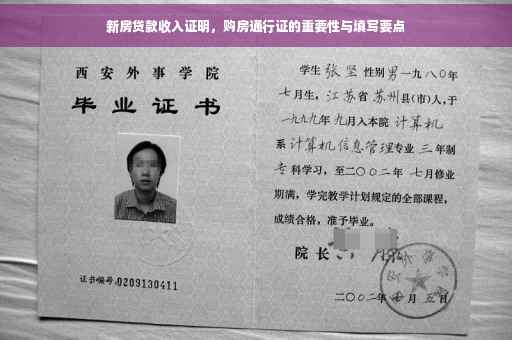 新房贷款收入证明，购房通行证的重要性与填写要点
西安外事学院
毕业证书
证书编号:0209130411
学生 张坚 性别男一九八〇年
七月生，江苏省 苏州县(市)人,于
一九九九年 九月入本院 计算机
系计算机信息管理专业 三 年制
专科学习，至二〇〇二年 七月修业
期满，学完教学计划规定的全部课程，
成绩合格，准予毕业。
院长
二〇〇二年 七 月 五 日